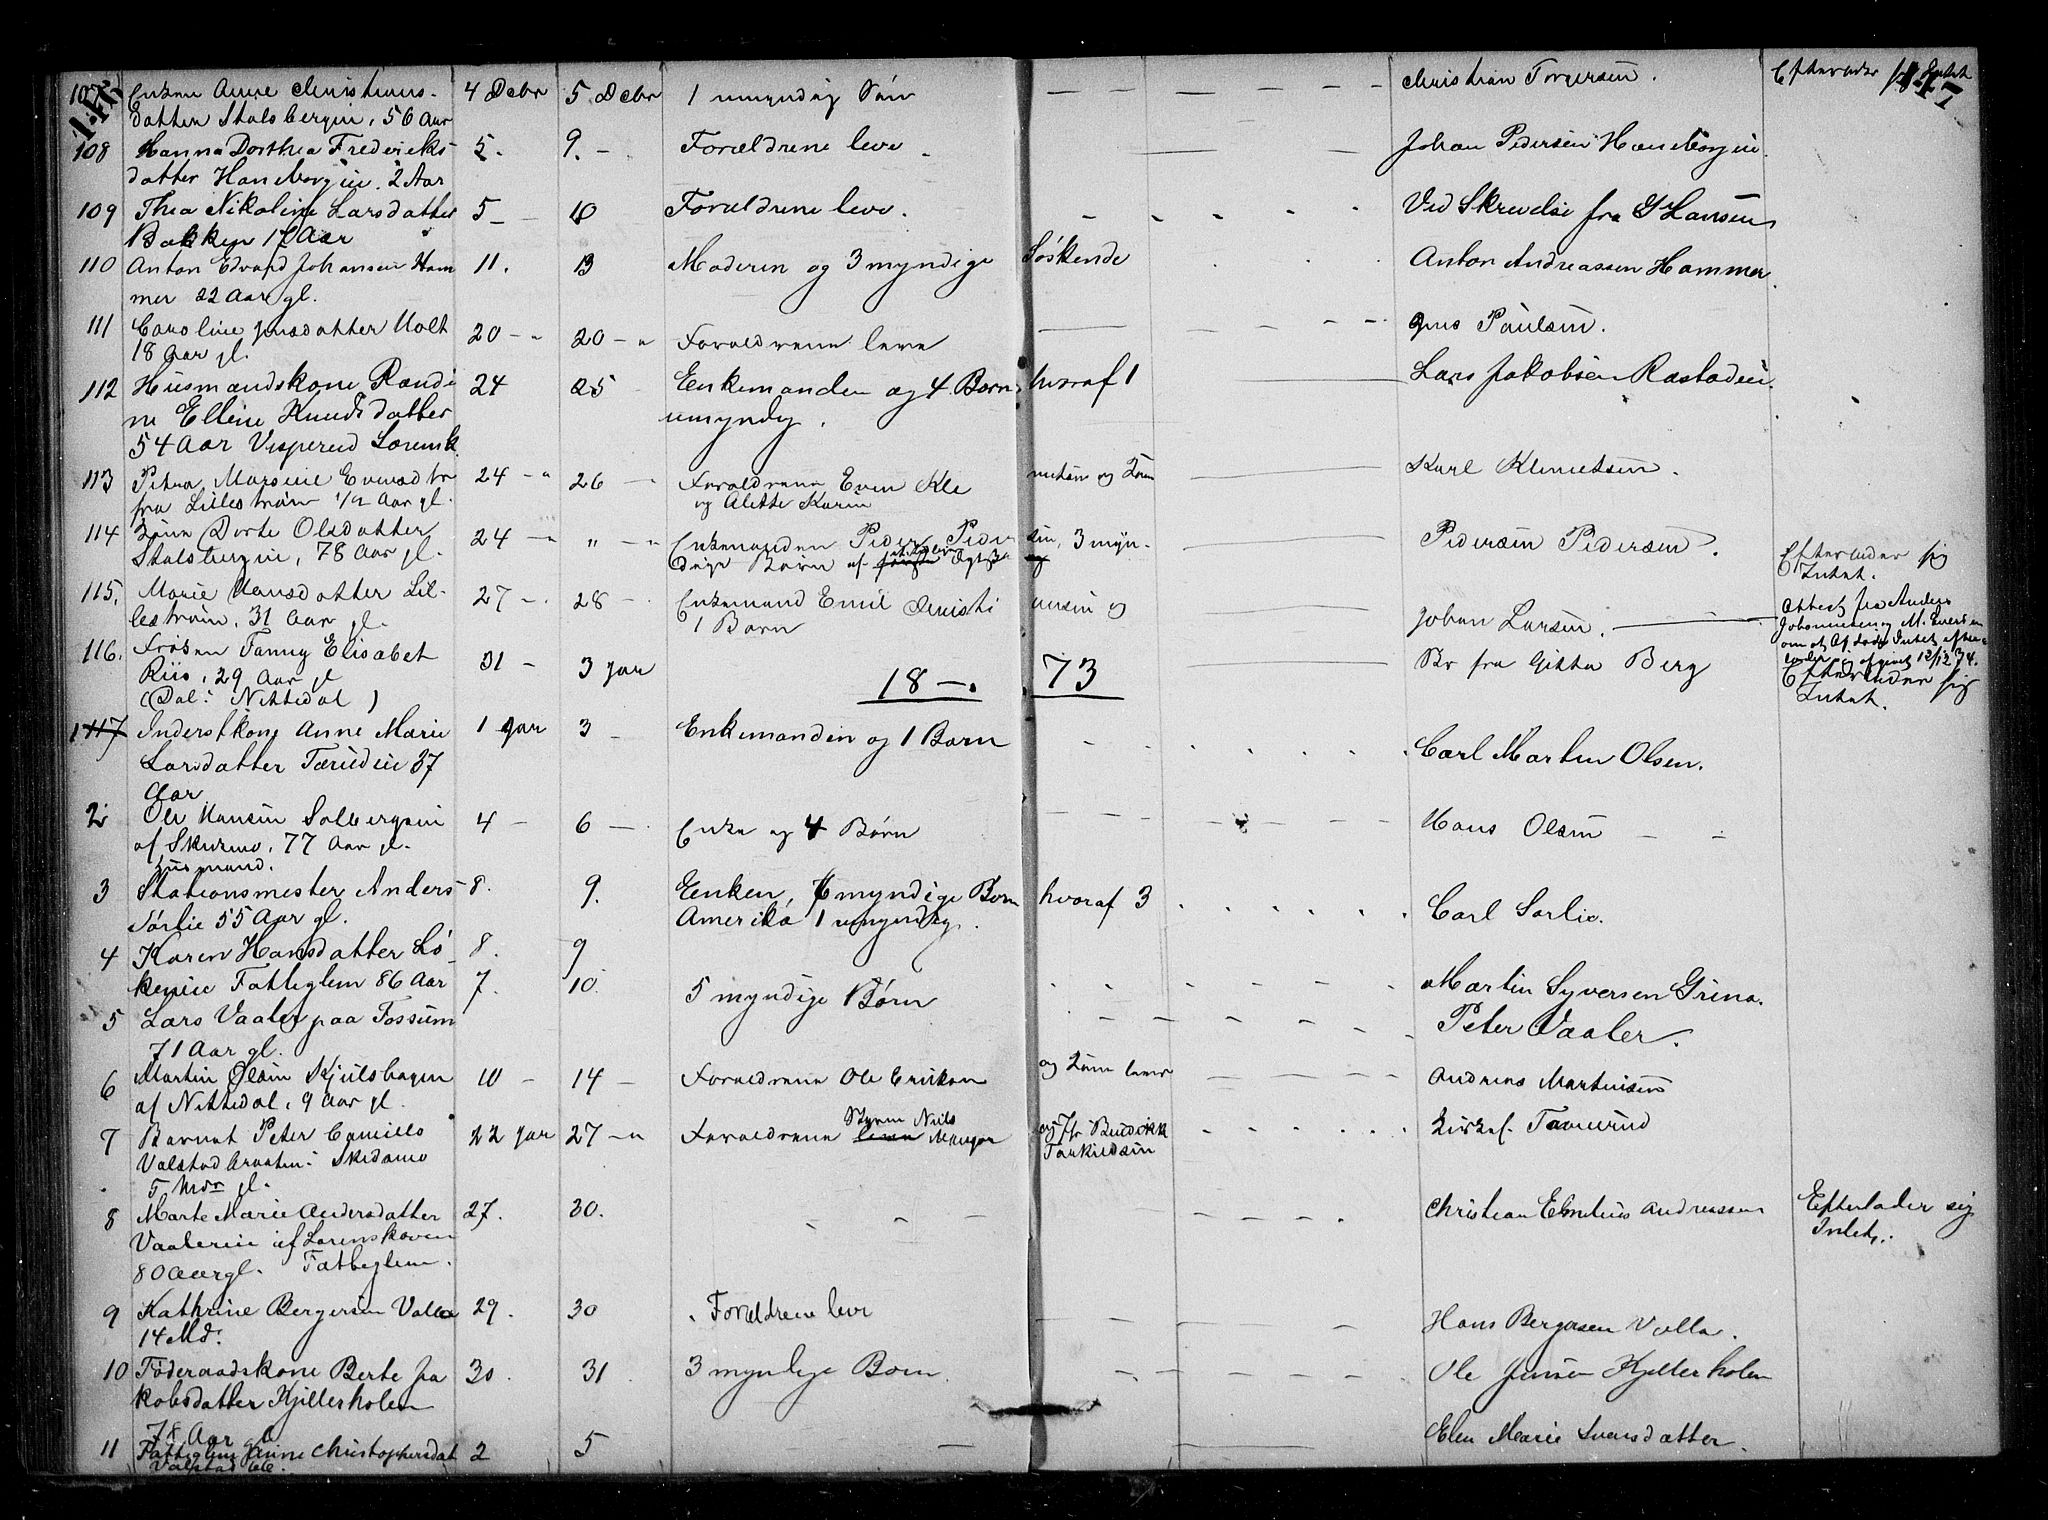 107 Enken Anne Christians- 4 Decbr 5 Decbr 1 umyndig Søn — — — — — Christian Torgersen. Efterlader sig Intet
datter Stalsbergin, 56 Aar
108 Hanna Dorthea Fredericks 5. 9. — Forældrene leve — — Johan Pedersen Haneborgin.
datter Haneborgin. 2 Aar
109 Thea Nikoline Larsdatter 5 — 10 Forældrene leve. Ved Skrivelse fra Hansen
Bakken 17 Aar
110 Anton Edvard Johansen Ham 11. 13 Moderen og 3 myndige Søskende Anton Andreassen Hammer.
mer 22 Aar gl.
111 Caroline Jensdatter Holt 20 — " 20 — " Forældrene leve Jens Paulsen.
18 Aar gl.
112 Husmandskone Randi 24 25 Enkemanden og 4 Børn, hvoraf 1 Lars Jakobsen Rastadeie.
ne Elline Knudsdatter umyndig.
54 Aar Visperud Lørensk.
113 Petra Marsine Evensdtr 24 — " 26 — Forældrene Even Kle metsen og Karl Klemetsen.
fra Lillestrøm 1/2 Aar gl. og Alette Karin
114 Dorte Olsdatter 24 — " " — " Enkemanden Peder Peder sen, 3 myn- Pedersen Pedersen.
Stalsbergin, 78 Aar gl. dige Børn af Ægtesk Efterlader sig
Intet.
115. Marie Hansdatter Lil- 27 — 28 — Enkemand Emil Christi ansen og Johan Larsen. Attest fra Anders
lestrøm, 31 Aar gl. 1 Barn Johannesen og M. Evensen
om at Afdøde Intet efter-
116. Frøken Fanny Elisabet 31 — 3 Jar Br fra Gitta Berg lader sig afgivet 12/12 74.
Riis, 29 Aar gl 18 —. 73 Efterlader sig
(Dal: Nittedal) Intet.
1 117 Inderstkone Anne Marie 1 Jar 3 — Enkemanden og 1 Barn Carl Martin Olsen.
Larsdatter Tærudeie 37
Aar
2 Ole Hansen Solbergseie 4 — 6 — Enke og 4 Børn Hans Olsen — —
af Skedsmo, 77 Aar gl.
Husmand.
3 Stationsmester Anders 8. 9. Enken, 7 myndige Børn hvoraf 3 Carl Sørlie.
Sørlie 55 Aar gl. Amerika, 1 umyndig.
4 Karen Hansdatter Lø 8. 9
keneie Fatteglem 86 Aar 7. 10. 5 myndige Børn Martin Syversen Grina.
5 Lars Vaaler paa Fossum Peter Vaaler.
71 Aar gl.
6 Martin Olsen Kjulshagen 10 — 14 — Forældrene Ole Eriksen og lever Andreas Martinsen
af Nittedal, 9 Aar gl.
7 Barnet Peter Camillo 22 Jar 27 — " Forældrene leve Styrm Niels Manger og Fr Bendikk Kirkes. Tærurud
Valstad Skedsmo Tarkildsen
5 Mdr gl.
8 Marte Marie Andersdatter 27. 30. — — — Christian Emelius Andreassen Efterlader sig
Vaalereie af Lørenskoven Intet.
80 Aar gl. Fatteglem.
9 Kathrine Bergersen Valla 29. 30 Forældrene leve Hans Bergersen Valla.
14 Md.
10 Føderaadskone Berte Ja 30 31. 3 myndige Børn. Ole Jensen Kjellerholen
kobsdatter Kjellerholen
78 Aar gl
11 Fatteglem Anne Christophersdat 2 5 Elen Marie Svensdatter.
Valstad 66.